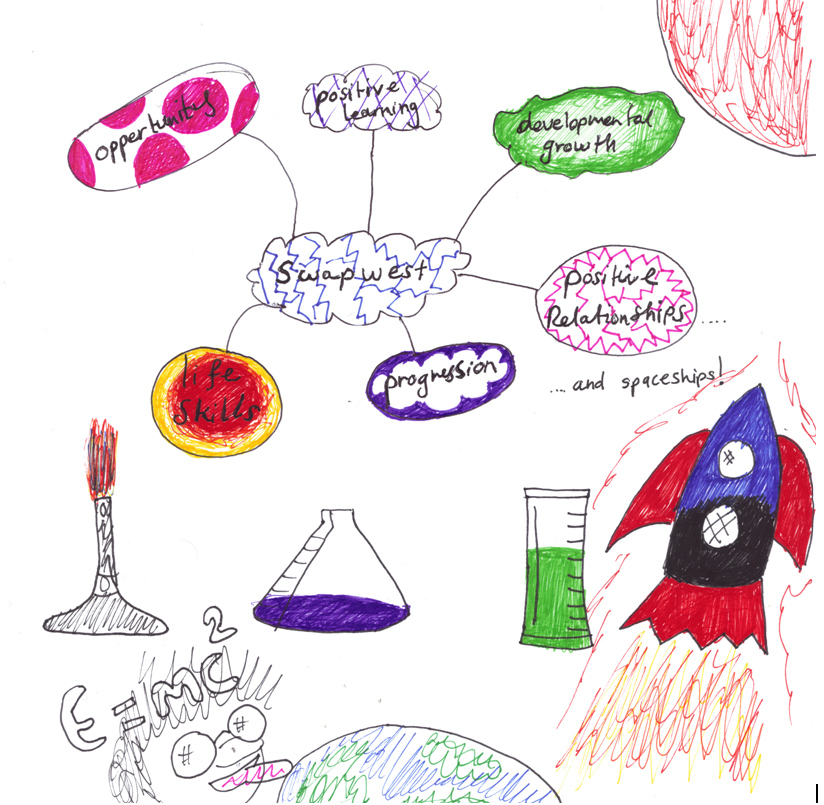 opportunity
positive
learning
developmental
growth
Swapwest
positive
Relationships ....
life
skills
progression
.... and spaceships!
E=MC2